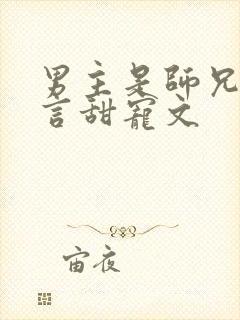 男主是師兄
言甜寵文
宙夜